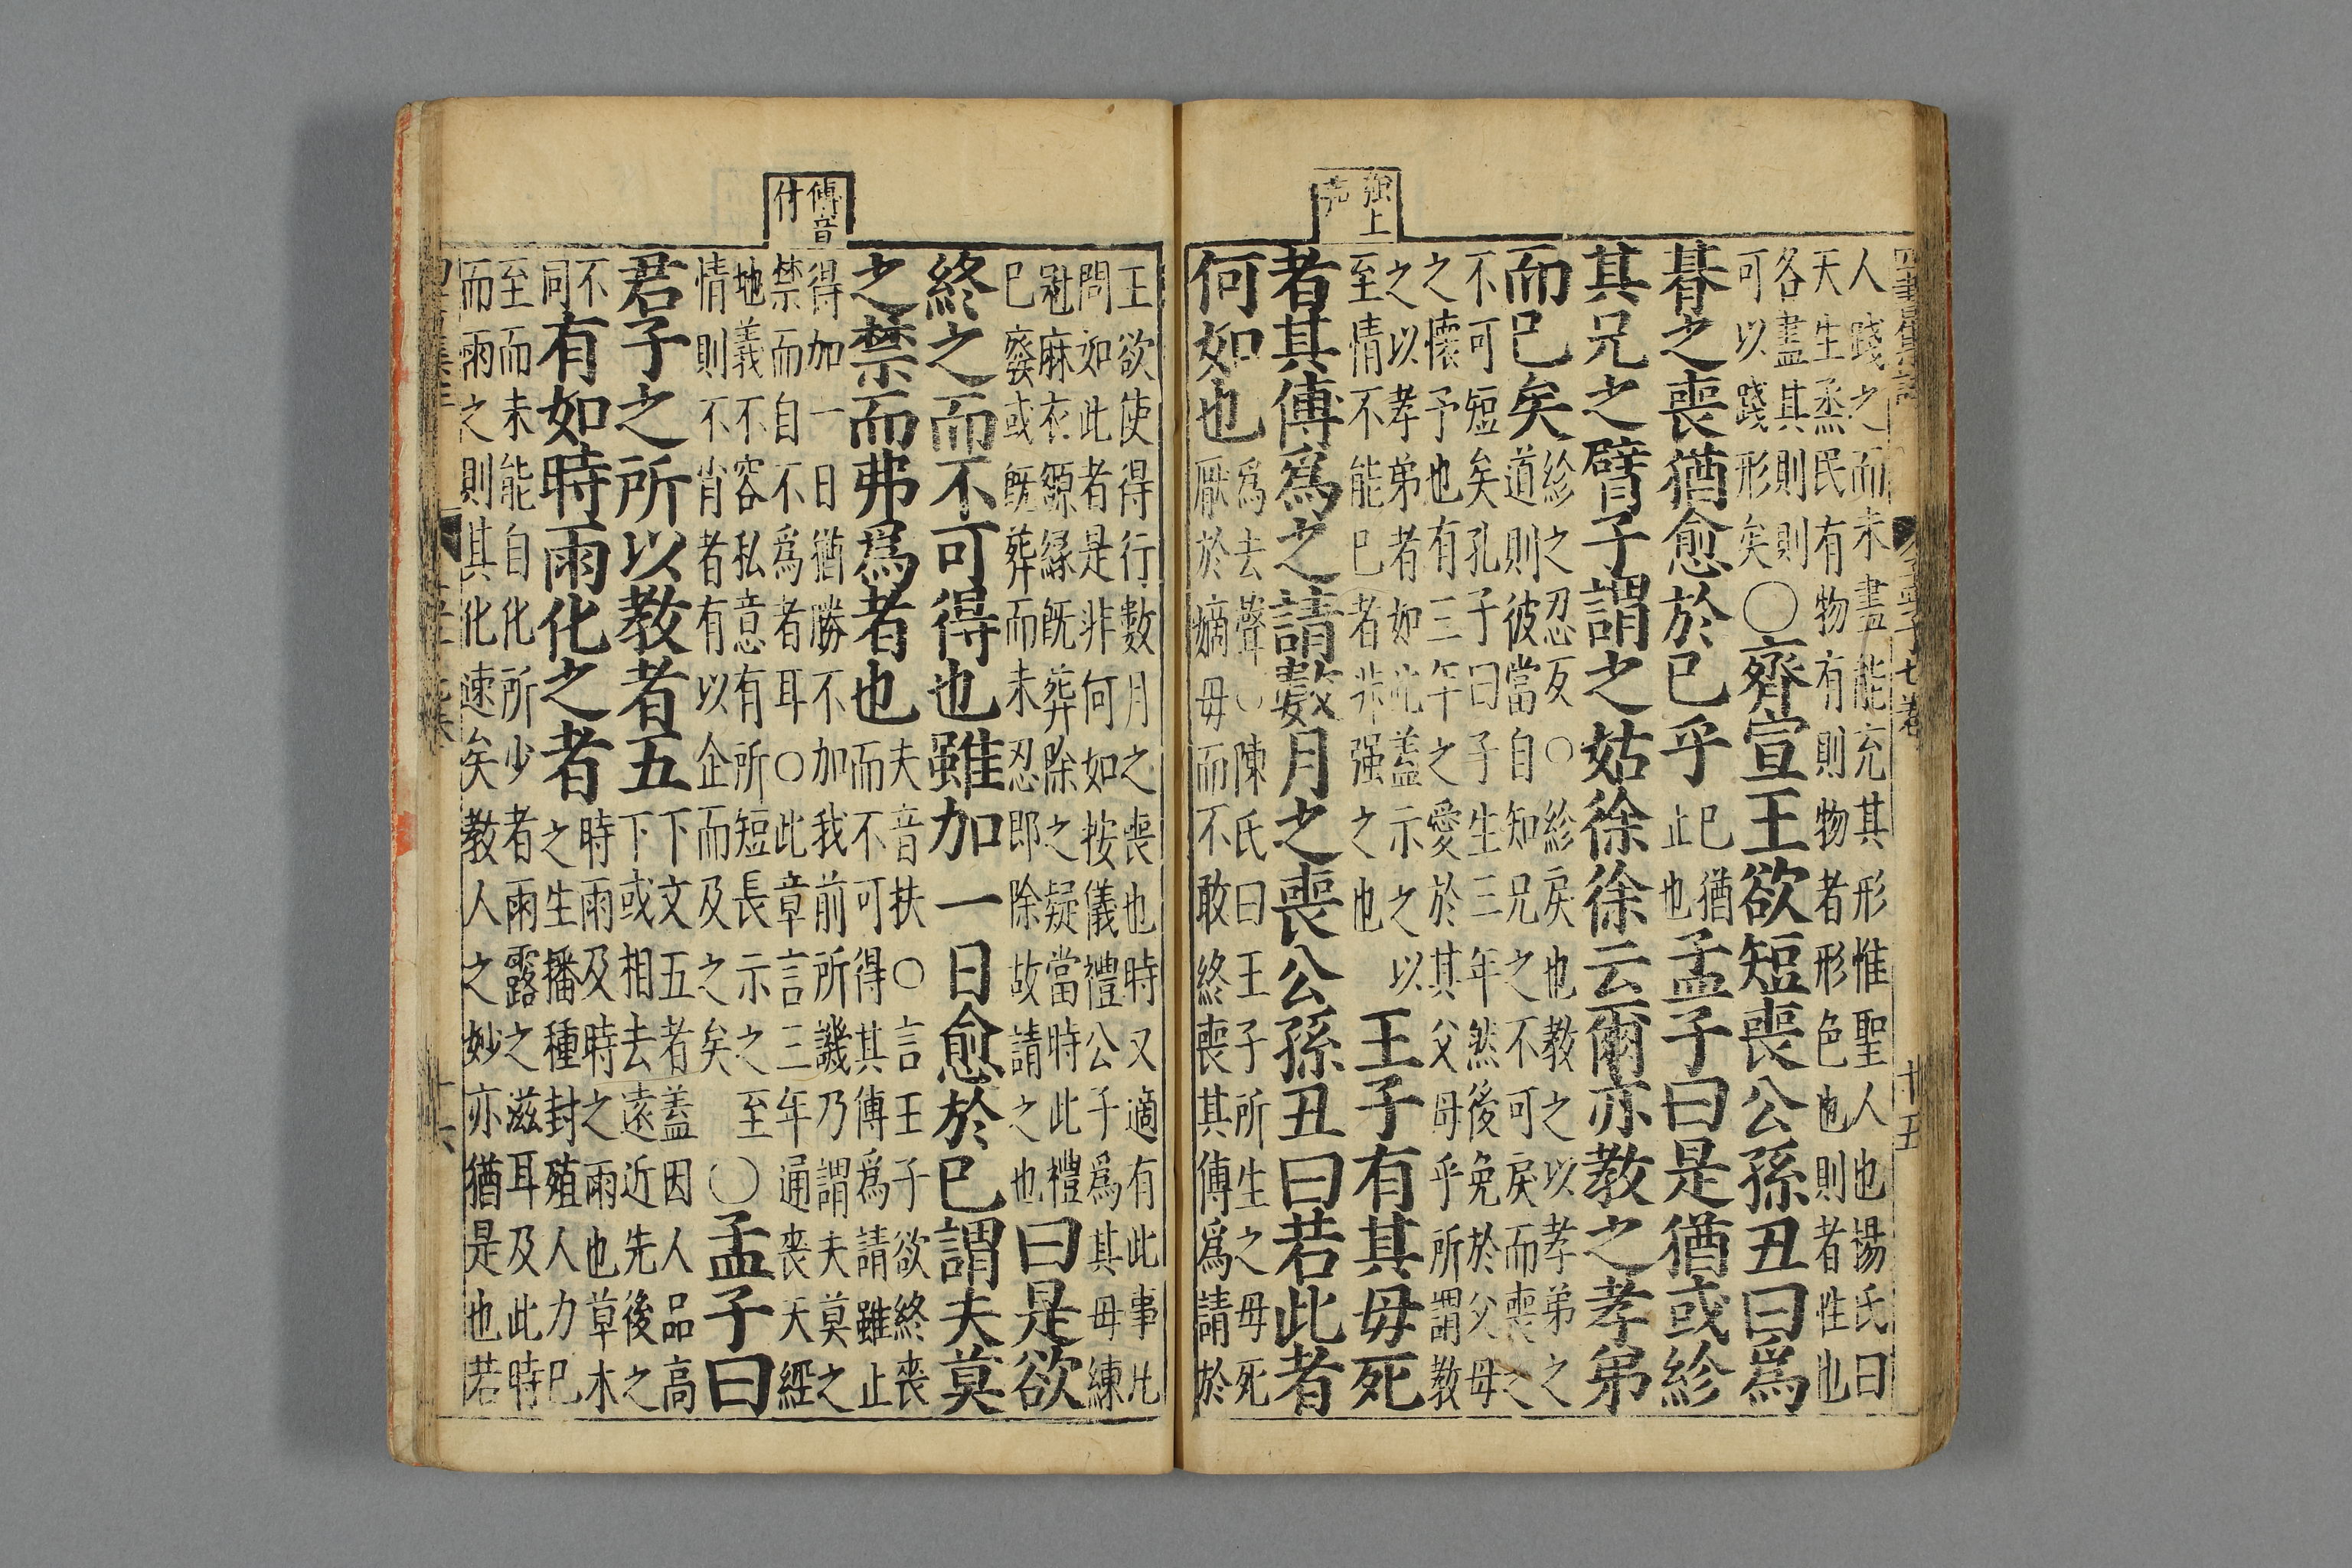 强上
声
人踐之而未盡能充其形惟聖人也楊氏曰
天生烝民有物有則物者形色也則者性也
各盡其則則
可以踐形矣
○齊宣王欲短喪公孫丑曰爲
朞之喪猶愈於已乎
已猶
止也
孟子曰是猶或紾
其兄之臂子謂之姑徐徐云爾亦教之孝弟
而已矣
紾之忍反○紾戾也教之以孝弟之
道則彼當自知兄之不可戾而喪之
不可短矣孔子曰子生三年然後免於父母
之懷予也有三年之愛於其父母乎所謂教
之以孝弟者如此盖示之以
至情不能已者非强之也
王子有其母死
者其傅爲之請數月之喪公孫丑曰若此者
何如也
爲去聲○陳氏曰王子所生之母死
厭於嫡母而不敢終喪其傅爲請於
四書集註
孟子七卷
十五
傅音
付
王欲使得行數月之喪也時又適有此事丑
問如此者是非何如按儀禮公子爲其母練
冠麻衣縓緣既葬除之疑當時此禮
已廢或既葬而未忍即除故請之也
曰是欲
終之而不可得也雖加一日愈於已謂夫莫
之禁而弗爲者也
夫音扶○言王子欲終喪
而不可得其傅爲請雖止
得加一日猶勝不加我前所譏乃謂夫莫之
禁而自不爲者耳○此章言三年通喪天經
地義不容私意有所短長示之至
情則不肖者有以企而及之矣
○孟子曰
君子之所以教者五
下文五者盖因人品高
下或相去遠近先後之
不
同
有如時雨化之者
時雨及時之雨也草木
之生播種封殖人力已
至而未能自化所少者雨露之滋耳及此時
而雨之則其化速矣教人之妙亦猶是也若
十六